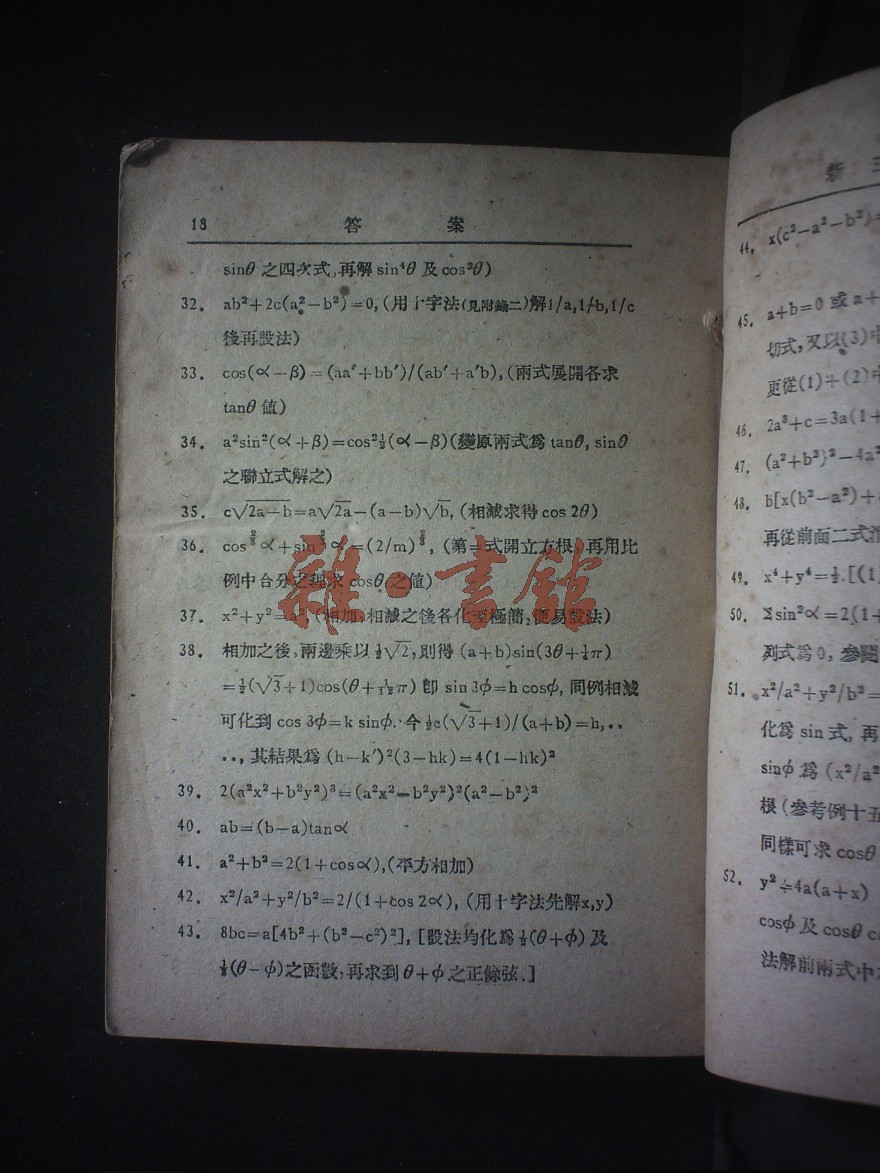 18 答 案
sinθ 之四次式,再解 sin⁴θ 及 cos²θ)
32. ab²+2c(a²−b²)=0,(用十字法(見附錄二)解1/a,1/b,1/c
後再設法)
33. cos(α−β)=(aa′+bb′)/(ab′+a′b),(兩式展開各求
tanθ 值)
34. a²sin²(α+β)=cos²½(α−β)(變原兩式爲 tanθ, sinθ
之聯立式解之)
35. c√2a−b=a√2a−(a−b)√b, (相減求得 cos 2θ)
36. cos⅔α+sin⅔α=(2/m)⅔, (第 式開立方根,再用比
例中合分之理求 cosθ 之值)
37. x²+y²=a², (相加,相減之後各化至極簡,便易設法)
38. 相加之後,兩邊乘以½√2,則得 (a+b)sin(3θ+¼π)
=½(√3+1)cos(θ+1/12π) 卽 sin 3φ=h cosφ, 同例相減
可化到 cos 3φ=k sinφ. 今 ½c(√3+1)/(a+b)=h,..
..,其結果爲 (h−k)²(3−hk)=4(1−hk)²
39. 2(a²x²+b²y²)³=(a²x²−b²y²)²(a²−b²)²
40. ab=(b−a)tanα
41. a²+b²=2(1+cosα),(平方相加)
42. x²/a²+y²/b²=2/(1+cos 2α), (用十字法先解x,y)
43. 8bc=a[4b²+(b²−c²)²], [設法均化爲½(θ+φ) 及
½(θ−φ)之函數,再求到θ+φ之正餘弦.]
雜·書館
新 三
44. x(c²−a²−b²)=
45. a+b=0 或 a+
切式,又以(3)中
更從(1)÷(2)中
46. 2a³+c=3a(1+
47. (a²+b²)²−4a²
48. b[x(b²−a²)+
再從前面二式消
49. x⁴+y⁴=½.[(1)
50. Σsin²α=2(1+
列式爲0, 參閱
51. x²/a²+y²/b²=
化爲 sin 式, 再
sinφ 爲 (x²/a²
根(參考例十五
同樣可求 cosθ
52. y²÷4a(a+x)
cosφ 及 cosθ c
法解前兩式中